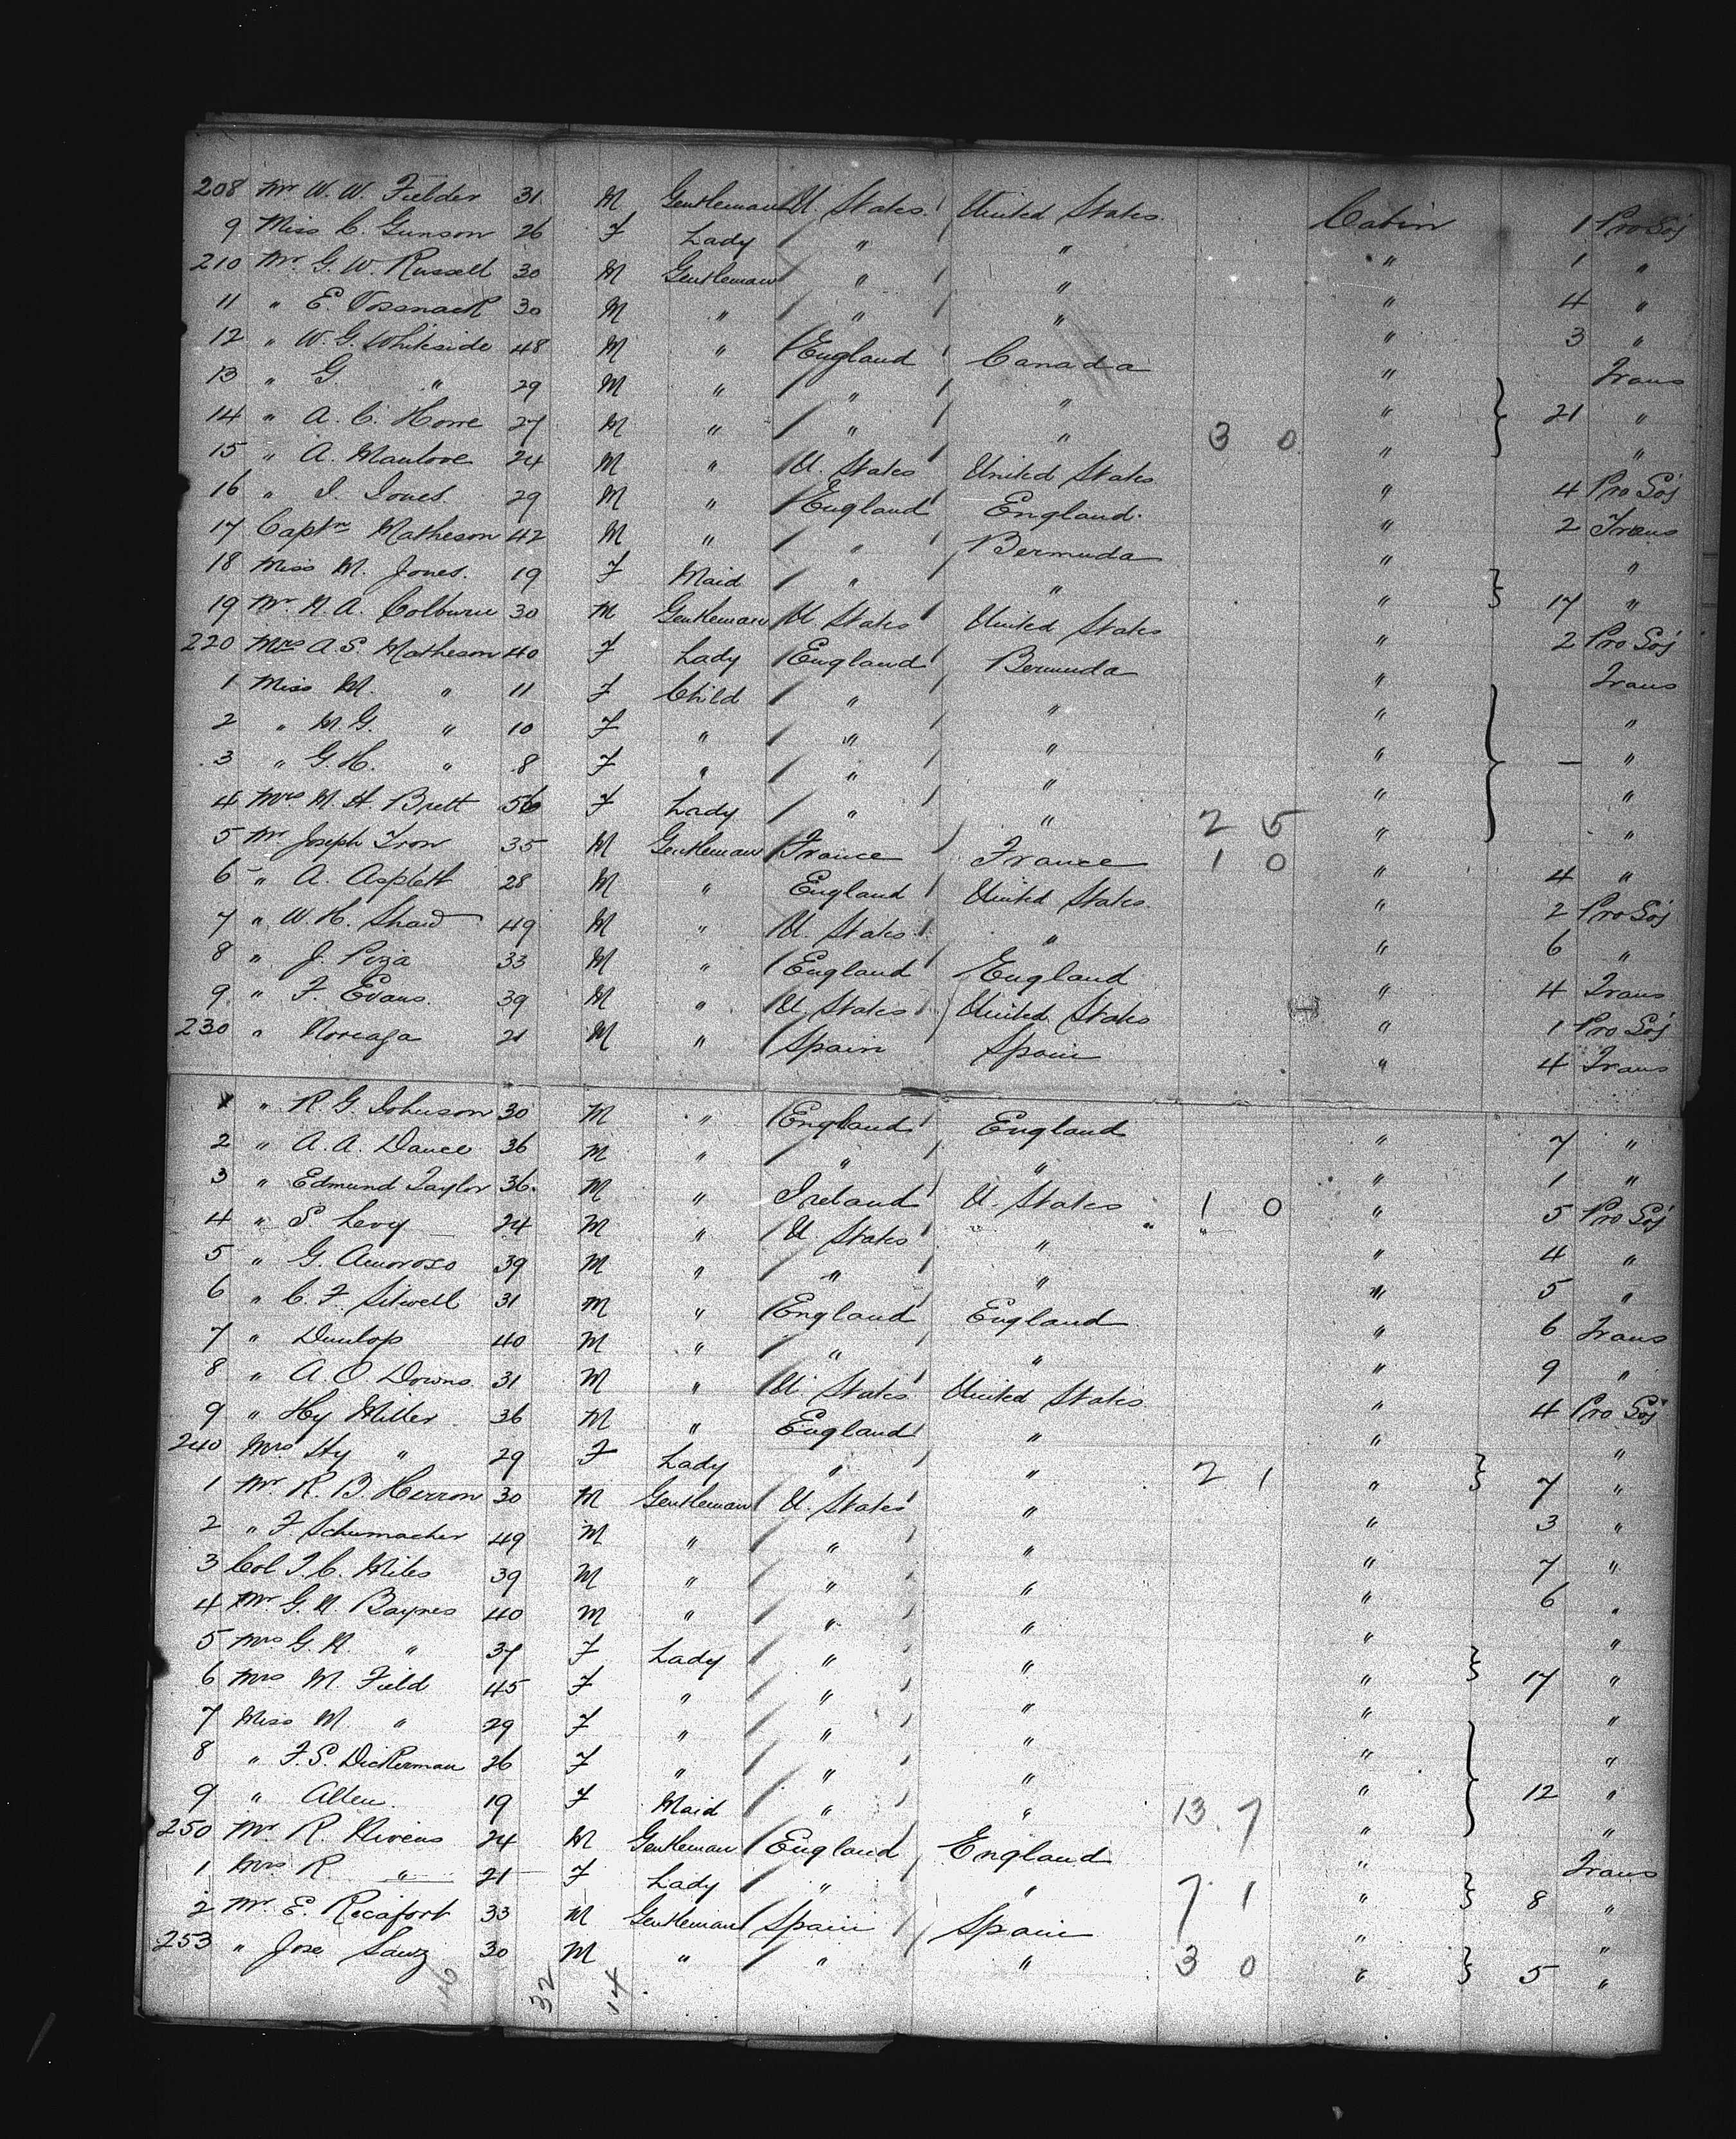 208 Mr W. W. Fielder 31 M Gentleman U States United States Cabin 1 Pro Soj
9 Miss C. Gunson 26 F Lady " " " 1 "
210 Mr G. W. Russell 30 M Gentleman " " " 4 "
11 " E. Vosnack 30 M " " " " 3 "
12 " W. G. Whiteside 48 M " England Canada " Trans
13 " G " 29 M " " " " } 21 "
14 " A. C. Horne 27 M " " " 3 0 " "
15 " A. Manlove 24 M " U. States United States " 4 Pro Soj
16 " I. Jones 29 M " England England " 2 Trans
17 Captn Matheson 42 M " " Bermuda " "
18 Miss M. Jones 19 F Maid " " " } 17 "
19 Mr N. A. Colburn 30 M Gentleman U States United States " 2 Pro Soj
220 Mrs A S. Matheson 40 F Lady England Bermuda " Trans
1 Miss M. " 11 F Child " " " "
2 " M. G. " 10 F " " " " } — "
3 " G. H. " 8 F " " " " "
4 Mrs M. H. Brett 56 F Lady " " 2 5 " "
5 Mr Joseph Tron 35 M Gentleman France France 1 0 " 4 "
6 " A. Asplett 28 M " England United States " 2 Pro Soj
7 " W. H. Shaw 49 M " U. States " " 6 "
8 " J. Piza 33 M " England England " 4 Trans
9 " F. Evans 39 M " U. States United States " 1 Pro Soj
230 " Noreaga 21 M " Spain Spain " 4 Trans
1 " R. G. Johnson 30 M " England England " 7 "
2 " A. A. Dance 36 M " " " " 1 "
3 " Edmund Taylor 36 M " Ireland U. States 1 0 " 5 Pro Soj
4 " S. Levy 24 M " U. States " " 4 "
5 " G. Amoroso 39 M " " " " 5 "
6 " C. F. Sitwell 31 M " England England " 6 Trans
7 " Dunlop 40 M " " " " 9 "
8 " A. O. Downs 31 M " U. States United States " 4 Pro Soj
9 " Hy Miller 36 M " England " " "
240 Mrs Hy " 29 F Lady " " 2 1 " } 7 "
1 Mr R. B. Herron 30 M Gentleman U. States " " 3 "
2 " F. Schumacher 49 M " " " " 7 "
3 Col T. C. Miles 39 M " " " " 6 "
4 Mr G. N. Baynes 40 M " " " " "
5 Mrs G. N. " 37 F Lady " " " } 17 "
6 Mrs M. Field 45 F " " " " "
7 Miss M. " 29 F " " " " "
8 " F. S. Dickerman 26 F " " " " } 12 "
9 " Allen 19 F Maid " " 13. 7 " "
250 Mr R. Nivens 24 M Gentleman England England " Trans
1 Mrs R " 21 F Lady " " 7 1 " } 8 "
2 Mr E. Recafort 33 M Gentleman Spain Spain " "
253 " Jose Sanz 30 M " " " 3 0 " } 5 "
46 32 14